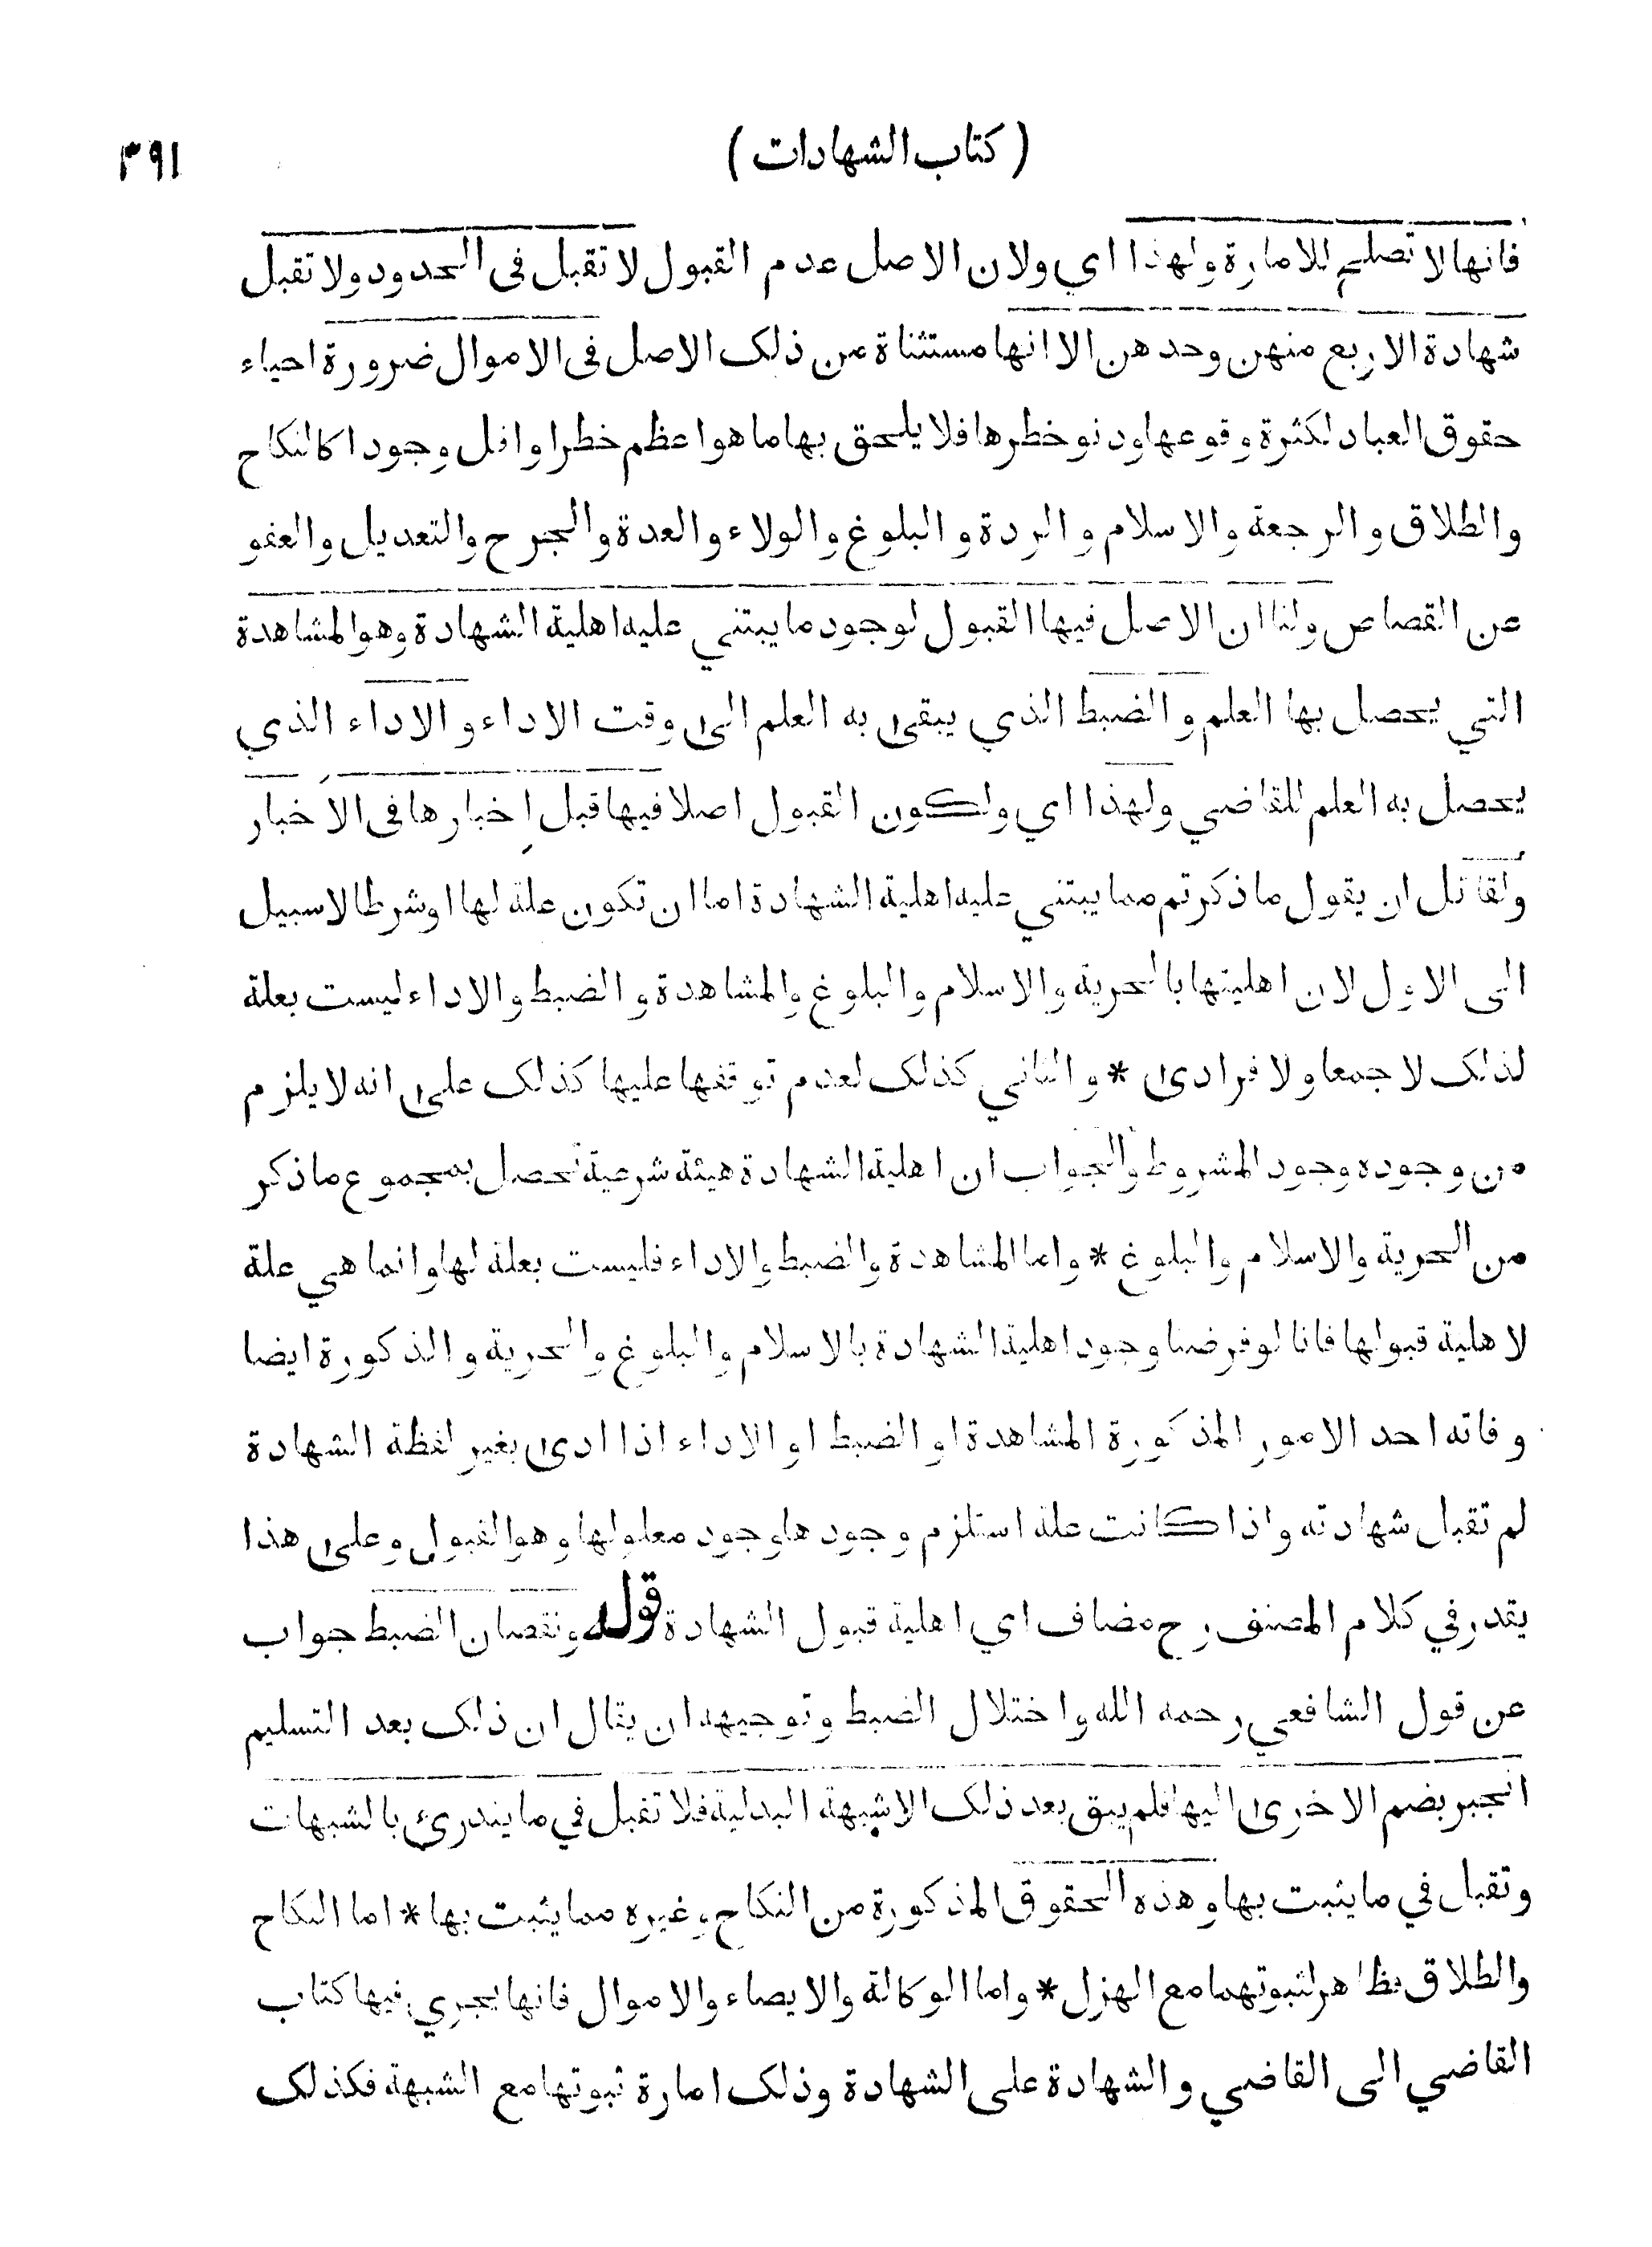 ( كتاب الشهادات )
٣٩١
فانها لا تصلح للامارة ولهذا اي ولان الاصل عدم القبول لا تقبل فى الحدود ولا تقبل
شهادة الاربع منهن وحدهن الا انها مستثناة عن ذلك الاصل فى الاموال ضرورة احياء
حقوق العباد لكثرة وقوعها ودنو خطرها فلا يلحق بها ما هو اعظم خطرا واقل وجودا كالنكاح
والطلاق والرجعة والاسلام والردة والبلوغ والولاء والعدة والجرح والتعديل والعفو
عن القصاص ولنا ان الاصل فيها القبول لوجود ما يبتني عليه اهلية الشهادة وهو المشاهدة
التي يحصل بها العلم والضبط الذي يبقى به العلم الى وقت الاداء والاداء الذي
يحصل به العلم للقاضي ولهذا اي ولكون القبول اصلا فيها قبل إخبارها فى الأخبار
ولقائل ان يقول ما ذكرتم مما يبتني عليه اهلية الشهادة اما ان تكون علة لها او شرطا لا سبيل
الى الاول لان اهليتها بالحرية والاسلام والبلوغ والمشاهدة والضبط والاداء ليست بعلة
لذلك لا جمعا ولا فرادى * والثاني كذلك لعدم توقفها عليها كذلك على انه لا يلزم
من وجوده وجود المشروط والجواب ان اهلية الشهادة هيئة شرعية تحصل بمجموع ما ذكر
من الحرية والاسلام والبلوغ * واما المشاهدة والضبط والاداء فليست بعلة لها وانما هي علة
لاهلية قبولها فانا لو فرضنا وجود اهلية الشهادة بالاسلام والبلوغ والحرية والذكورة ايضا
وفاته احد الامور المذكورة المشاهدة او الضبط او الاداء اذا ادى بغير لفظة الشهادة
لم تقبل شهادته واذا كانت علة استلزم وجودها وجود معلولها وهو القبول وعلى هذا
يقدر في كلام المصنف رح مضاف اي اهلية قبول الشهادة قوله ونقصان الضبط جواب
عن قول الشافعي رحمه الله واختلال الضبط وتوجيهه ان يقال ان ذلك بعد التسليم
انجبر بضم الاخرى اليها فلم يبق بعد ذلك الا شبهة البدلية فلا تقبل في ما يندرئ بالشبهات
وتقبل في ما يثبت بها وهذه الحقوق المذكورة من النكاح وغيره مما يثبت بها * اما النكاح
والطلاق فظاهر لثبوتهما مع الهزل * واما الوكالة والايصاء والاموال فانها يجري فيها كتاب
القاضي الى القاضي والشهادة على الشهادة وذلك امارة ثبوتها مع الشبهة فكذلك